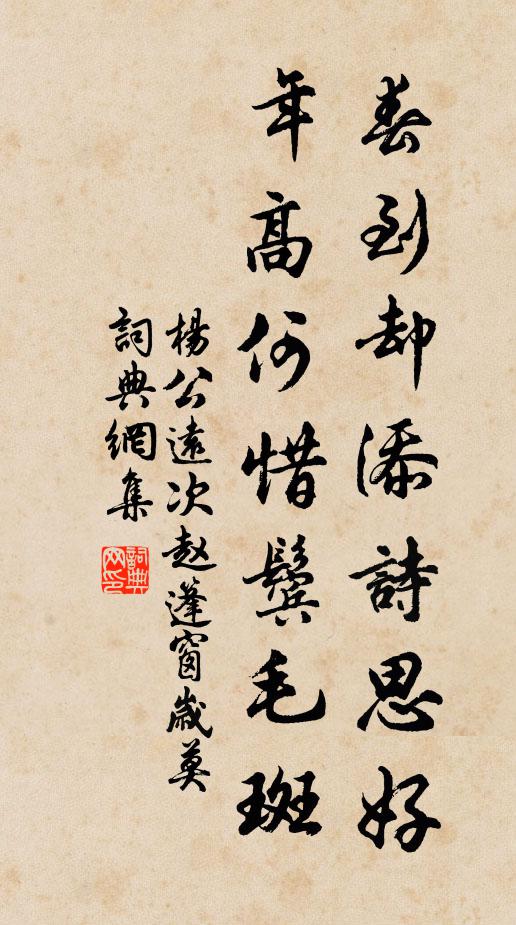 春到却添詩思好
年高何惜鬓毛斑
楊公遠次赵蓬窗歲莫
詞典網集
詞典网印